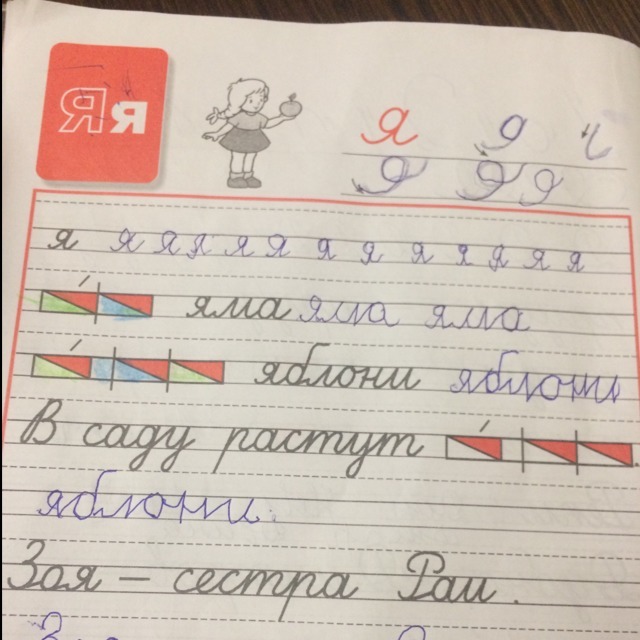 Я я
я
я я я я я я я я я я я я
яма яма яма
яблони яблони
В саду растут
яблони.
Зоя – сестра Раи.